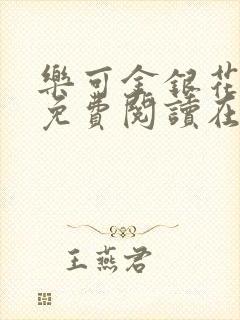 樂可金銀花
免費閱讀在
王燕君